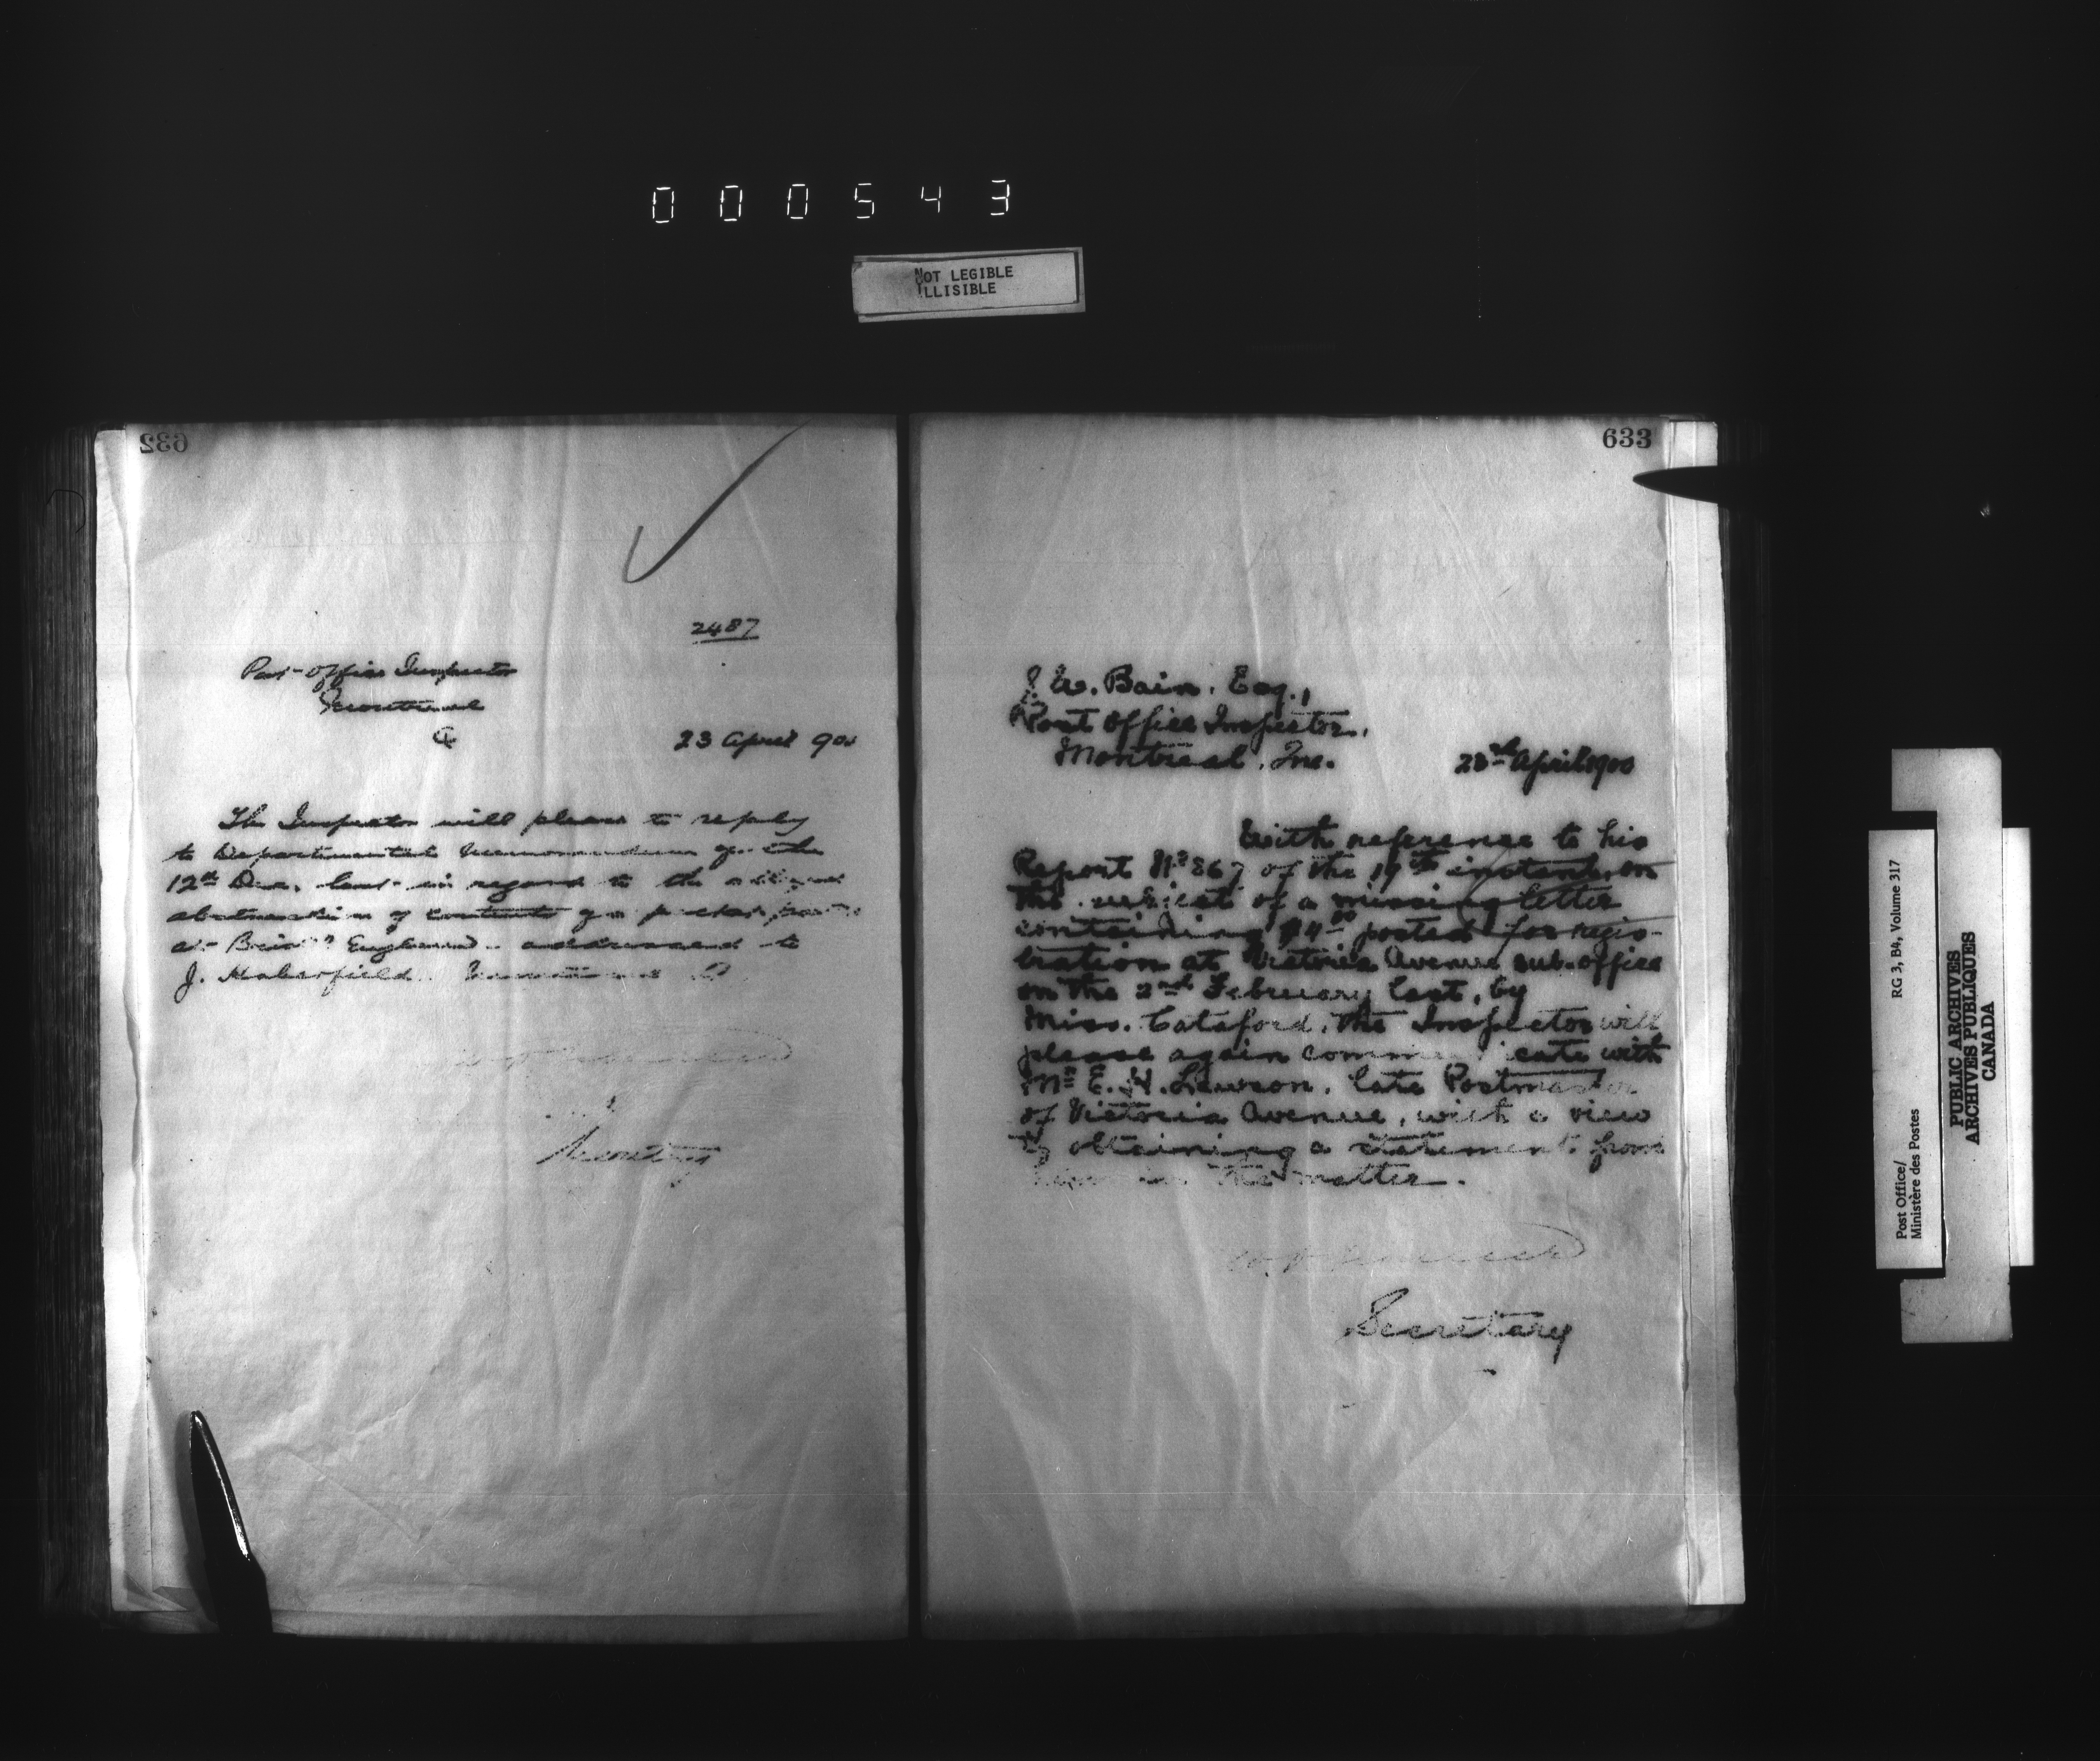 000543
NOT LEGIBLE
ILLISIBLE
632
2487
Post Office Inspector
Montreal
Q
23 April 900
The Inspector will please to reply
to Departmental Memorandum of the
12th Dec. last in regard to the alleged
abstraction of contents of a packet posted
at England addressed to
J. Haberfield Montreal Q
Secretary
633
J. W. Bain. Esq.,
Post Office Inspector.
Montreal, Que.
23rd April 1900
With reference to his
Report No 867 of the 19th instant, on
the subject of a missing letter
containing $4.00 posted for regis-
tration at Victoria Avenue sub-office
on the 2nd February last, by
Miss. Cataford, the Inspector will
please again communicate with
Mr E. H. Lawson, late Postmaster
of Victoria Avenue, with a view
to obtaining a statement from
him in the matter.
Secretary
Post Office/
Ministère des Postes
RG 3, B4, Volume 317
PUBLIC ARCHIVES
ARCHIVES PUBLIQUES
CANADA